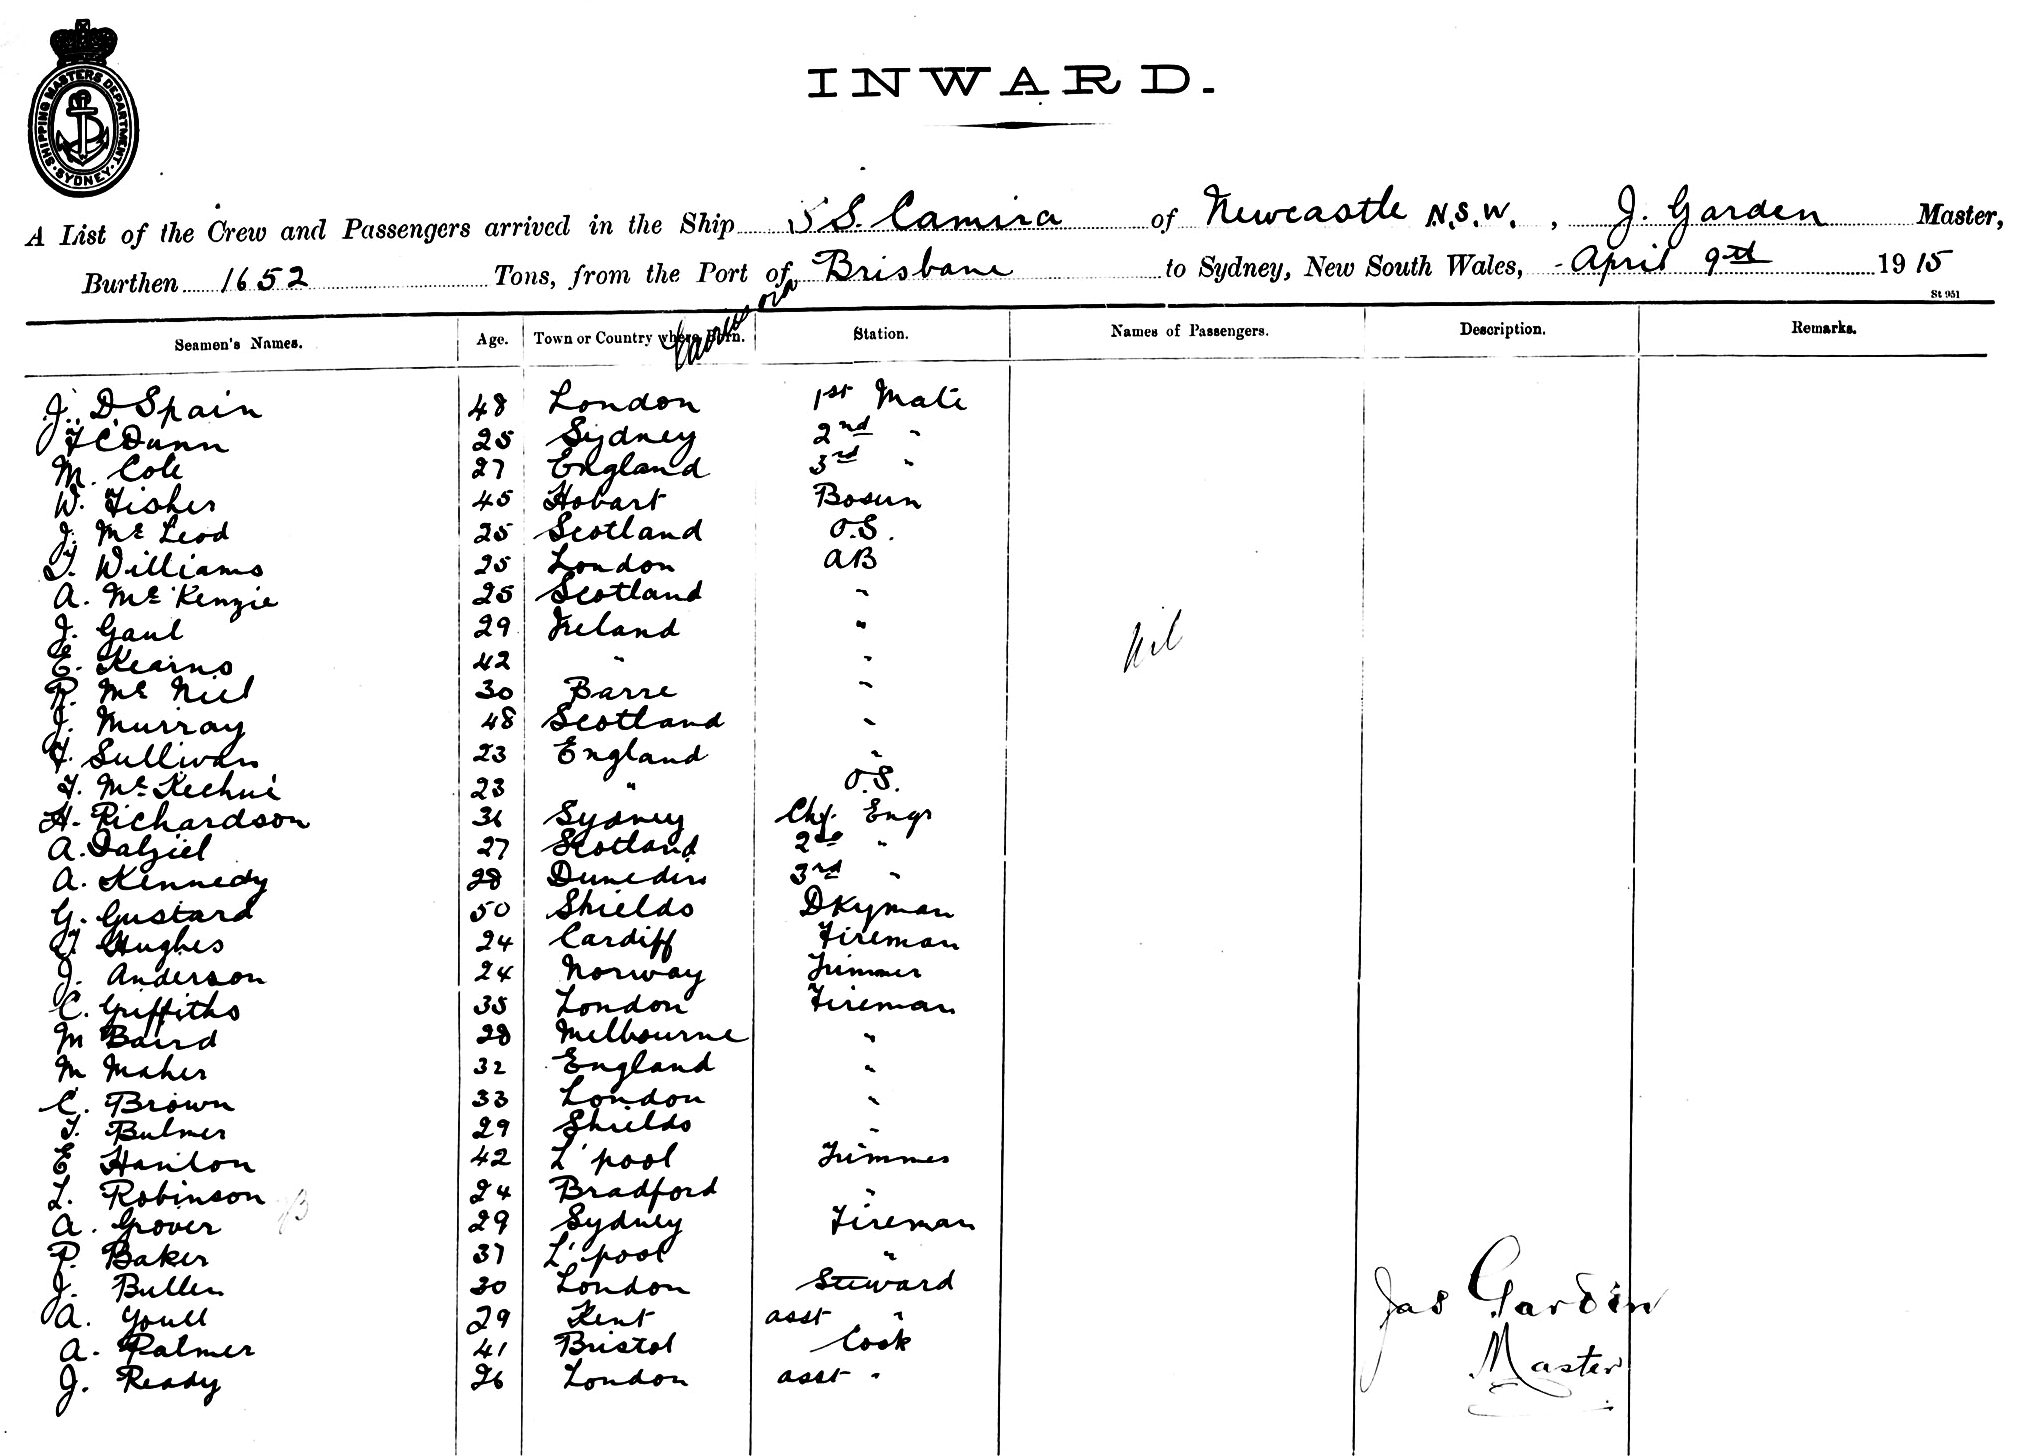 SHIPPING MASTERS DEPARTMENT · SYDNEY ·
INWARD.
A List of the Crew and Passengers arrived in the Ship S S. Camira of Newcastle N.S.W. , J. Garden Master,
Burthen 1652 Tons, from the Port of Brisbane to Sydney, New South Wales, April 9th 1915
St 951
Seamen's Names. Age. Town or Country where Born. Station. Names of Passengers. Description. Remarks.
J. D Spain 48 London 1st Mate
F C Dunn 25 Sydney 2nd "
M. Cole 27 England 3rd "
W. Fisher 45 Hobart Bosun
J. Mc Leod 25 Scotland O.S.
T. Williams 25 London AB
A. Mc Kenzie 25 Scotland "
J. Gaul 29 Ireland "
E. Kearns 42 " "
R. Mc Niel 30 Barre "
J. Murray 48 Scotland "
F. Sullivan 23 England "
F. Mc Kechnie 23 " O.S.
H. Richardson 36 Sydney Chf. Engr
A. Dalziel 27 Scotland 2nd "
A. Kennedy 28 Dunedin 3rd "
G. Gustard 50 Shields Dkyman
T. Hughes 24 Cardiff Fireman
J. Anderson 24 Norway Trimmer
C. Griffiths 35 London Fireman
M Baird 28 Melbourne "
M Maher 32 England "
C. Brown 33 London "
T. Bulmer 29 Shields "
E Hanlon 42 L'pool Trimmer
L. Robinson 24 Bradford "
A. Grover 29 Sydney Fireman
P. Baker 37 L'pool "
J. Bullen 30 London Steward
A. Youll 29 Kent asst "
A. Palmer 41 Bristol Cook
J. Ready 26 London asst "
Nil
Jas Garden
Master